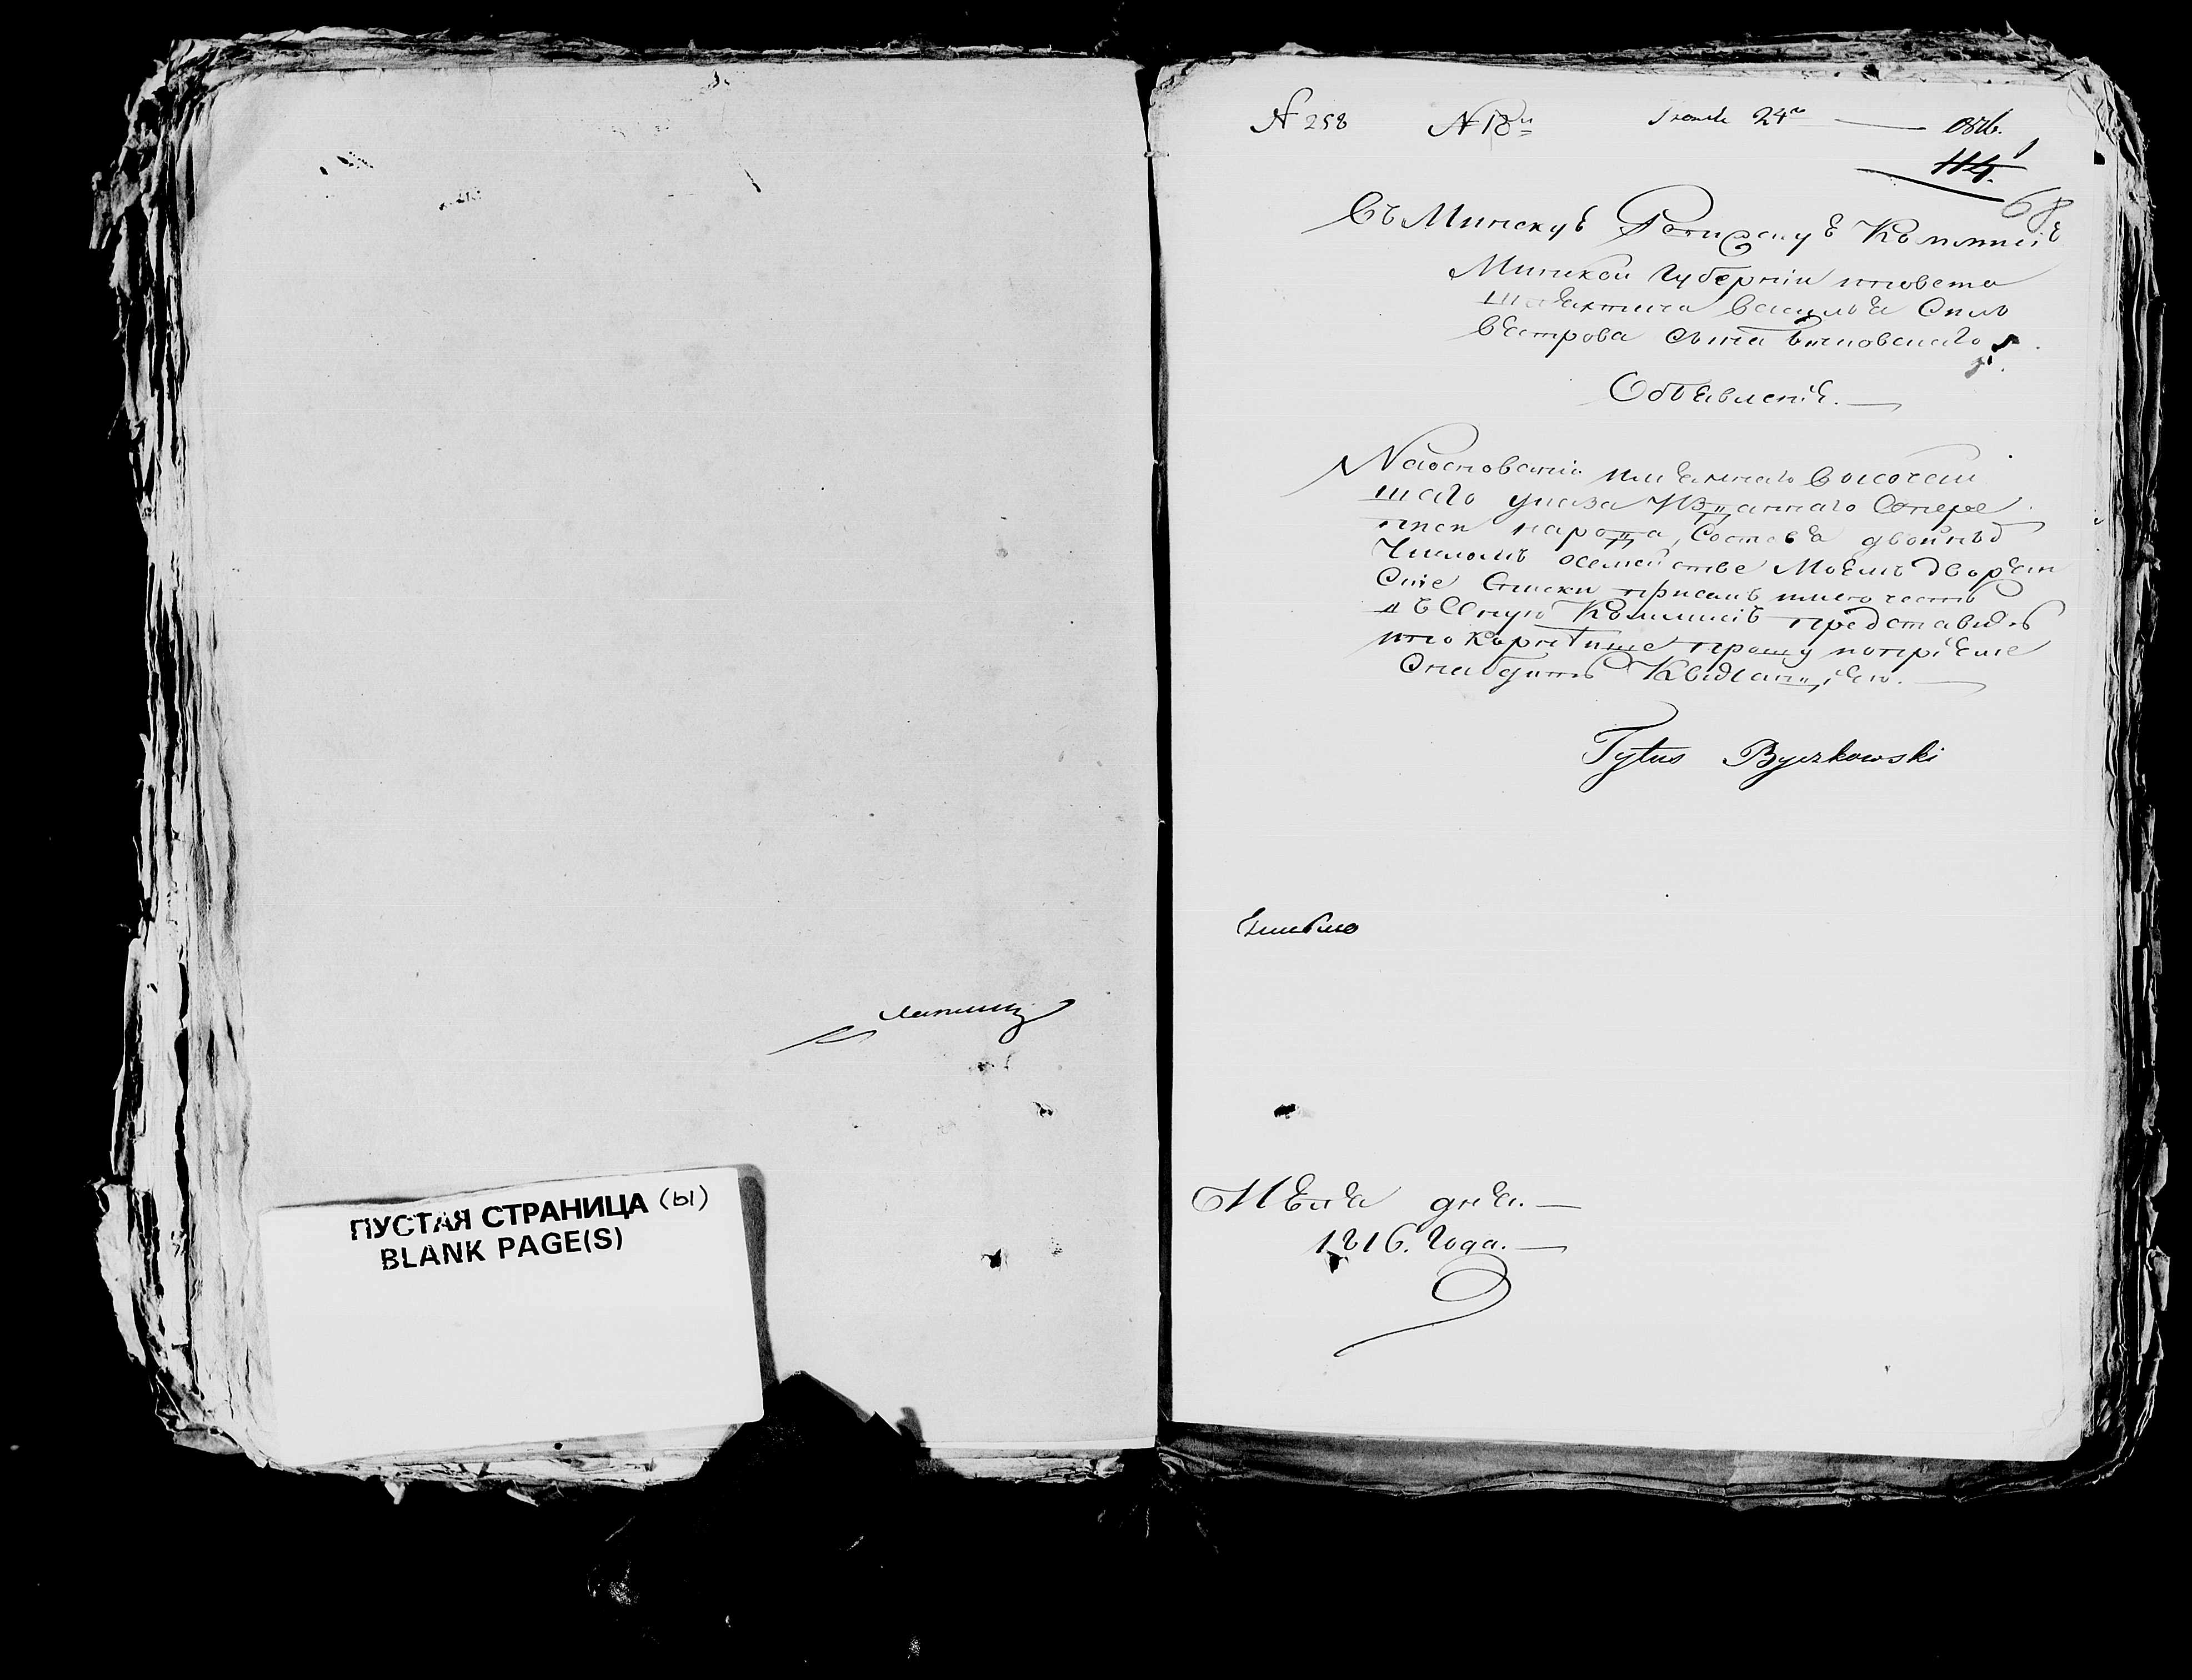 ПУСТАЯ СТРАНИЦА (ы)
BLANK PAGE(S)
№ 258 № 18 24 816.
114.
68
Въ Минскуѣ Ревизскуѣ Коммисіѣ
Минской Губерніи иповета
шляхтича Василья Силь
вестрова сына Бычковскаго
Объевленіе.
Наосновании имяннаго Высочай
шаго указа Изданнаго Опере
писи народа, Составя двойныѣ
Числомъ осемействе Моемъ дворян
Скіе Списки присемъ имею честь
въ Оную Коммисіѣ представить
ипокорнейше прошу поприеме
Снабдить Квитанціею.
Tytus Byczkowski
Мѣсеца дня.
1816. Года.